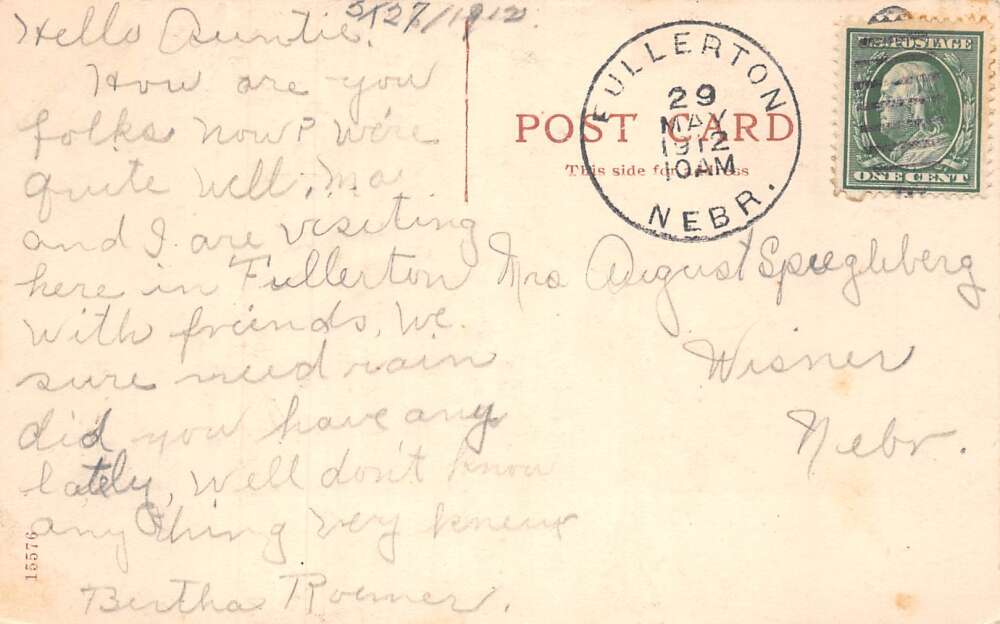 5/27/1912
Hello Auntie.
How are you
folks now? We're
quite well, Ma
and I are visiting
here in Fullerton
with friends, we
sure need rain
did you have any
lately, well don't know
any thing very knew
Bertha Roemer.
15576
POST CARD
This side for address
FULLERTON
29
MAY
1912
10AM
NEBR.
U.S. POSTAGE
ONE CENT
Mrs August Spieglsberg
Wisner
Nebr.